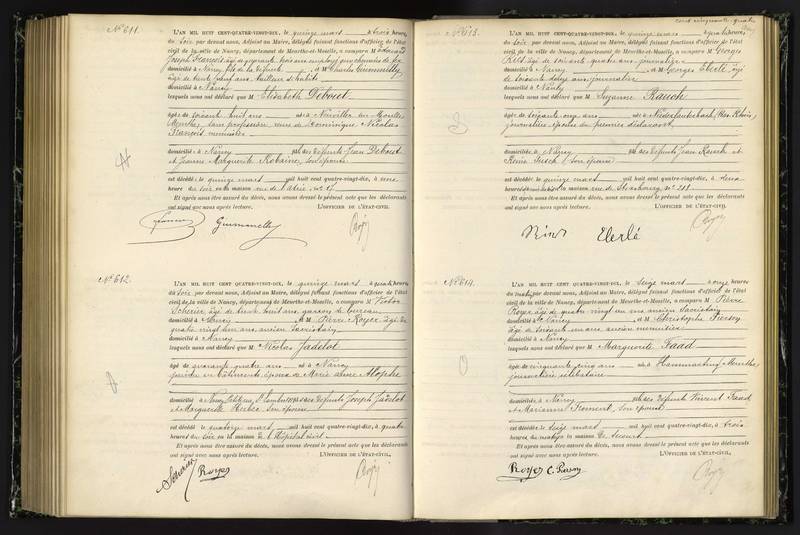 N° 611.
L'AN MIL HUIT CENT-QUATRE-VINGT-DIX, le quinze mars à trois heures
du soir par devant nous, Adjoint au Maire, délégué faisant fonctions d'officier de l'état
civil de la ville de Nancy, département de Meurthe-et-Moselle, a comparu M Edouard
Joseph François âgé de quarante trois ans employé au chemin de fer
domicilié à Nancy, fils de la défunte et M Charles
âgé de trente neuf ans, tailleur d'habits
domicilié à Nancy
lesquels nous ont déclaré que M Elisabeth Debout
âgée de soixante huit ans née à Neuviller sur Moselle
Meurthe, sans profession, veuve de Dominique Nicolas
François menuisier
domiciliée à Nancy fille des défunts Jean Debout
et Jeanne Marguerite Robaine, son épouse
est décédée le quinze mars mil huit cent quatre-vingt-dix, à une
heure du soir en la maison rue de
Et après nous être assuré du décès, nous avons dressé le présent acte que les déclarants
ont signé avec nous après lecture. L'OFFICIER DE L'ÉTAT-CIVIL
N° 612.
L'AN MIL HUIT CENT QUATRE-VINGT-DIX, le quinze mars à quatre heures
du soir, par devant nous, Adjoint au Maire, délégué faisant fonctions d'officier de l'état
civil de la ville de Nancy, département de Meurthe-et-Moselle, a comparu M Victor
Scherier, âgé de trente huit ans, garçon de bureau
domicilié à Nancy et M Pierre Royer âgé de
quatre vingt un ans, ancien sacristain
domicilié à Nancy
lesquels nous ont déclaré que M Nicolas Jadelot
âgé de quarante quatre ans né à Nancy
peintre en bâtiments époux de Marie Anne Alophe
domicilié à Nancy fils des défunts Joseph Jadelot
et Marguerite son épouse
est décédé le quatorze mars mil huit cent quatre-vingt-dix, à quatre
heures du soir en la maison de l'hôpital civil
Et après nous être assuré du décès, nous avons dressé le présent acte que les déclarants
ont signé avec nous après lecture. L'OFFICIER DE L'ÉTAT-CIVIL,
Royer
cent cinquante-quatre
N° 613.
L'AN MIL HUIT CENT QUATRE-VINGT-DIX, le quinze mars à quatre heures
du soir, par devant nous, Adjoint au Maire, délégué faisant fonctions d'officier de l'état
civil de la ville de Nancy, département de Meurthe-et-Moselle, a comparu M Georges
âgé de soixante quatre ans journalier
domicilié à Nancy et M Georges Eberlé, âgé
de soixante deux ans journalier
domicilié à Nancy
lesquels nous ont déclaré que M Suzanne Rauch
âgée de soixante cinq ans née à Niederlauterbach (Bas-Rhin),
journalière, épouse du premier déclarant
domiciliée à Nancy fille des défunts Jean Rauch et
son épouse
est décédée le quinze mars mil huit cent quatre-vingt-dix, à deux
heures en la maison rue de Strasbourg, n° 211
Et après nous être assuré du décès, nous avons dressé le présent acte que les déclarants
ont signé avec nous après lecture. L'OFFICIER DE L'ÉTAT-CIVIL,
Eberlé
N° 614.
L'AN MIL HUIT CENT QUATRE-VINGT-DIX, le seize mars à onze heures
du matin par devant nous, Adjoint au Maire, délégué faisant fonctions d'officier de l'état
civil de la ville de Nancy, département de Meurthe-et-Moselle, a comparu M Pierre
Royer âgé de quatre vingt un ans ancien sacristain
domicilié à Nancy et M Christophe Pierson
âgé de soixante ans, ancien menuisier
domicilié à Nancy
lesquels nous ont déclaré que M Marguerite Faad
âgée de cinquante cinq ans née à (Meurthe),
journalière célibataire
domiciliée à Nancy fille des défunts Vincent Faad
et Marianne Froment, son épouse
est décédée le seize mars mil huit cent quatre-vingt-dix, à trois
heures du matin en la maison de secours
Et après nous être assuré du décès, nous avons dressé le présent acte que les déclarants
ont signé avec nous après lecture. L'OFFICIER DE L'ÉTAT-CIVIL,
Royer C. Pierson